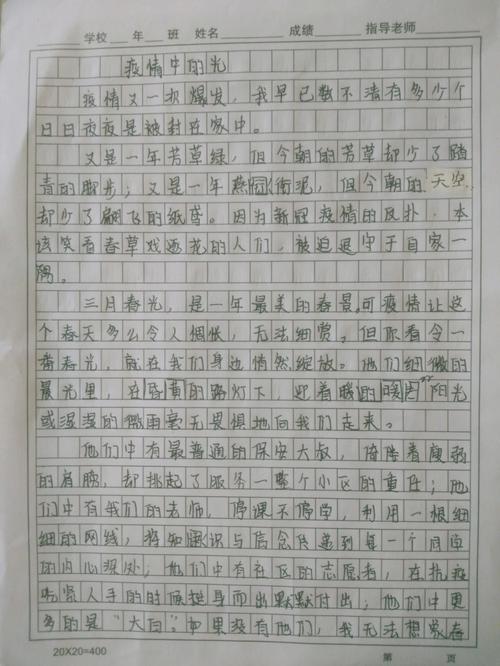 学校 年 班 姓名 成绩 指导老师
疫情中的光
疫情又一次爆发，我早已数不清有多少个
日日夜夜是被封在家中。
又是一年芳草绿，但今朝的芳草却少了踏
青的脚步；又是一年燕回衔泥，但今朝的天空
却少了翩飞的纸鸢。因为新冠疫情的反扑，本
该笑看春草戏逐花的人们，被迫退守于自家一
隅。
三月春光，是一年最美的春景，可疫情让这
个春天多么令人惆怅，无法细赏。但你看令一
番春光，就在我们身边悄然绽放。他们细微的
晨光里，在昏黄的路灯下，迎着暖暖的阳光
或湿湿的微雨毫无畏惧地向我们走来。
他们中有最普通的保安大叔，倚陪着瘦弱
的肩膀，却挑起了服务一整个小区的重任；他
们中有我们的老师，停课不停学，利用一根细
细的网线，将知识与信念传递到每一个同学
的内心深处；他们中有社区的志愿者，在抗疫
吃紧人手的时候挺身而出默默付出；他们中更
多的是“大白”如果没有他们，我无法想象春
20X20=400 第 页